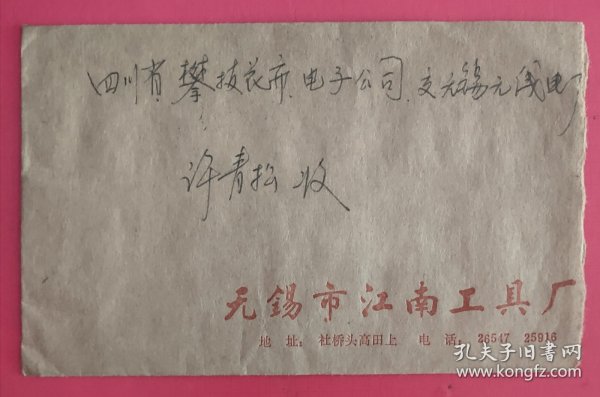 四川省攀枝花市.电子公司.交无锡无线电厂
许青松 收
无锡市江南工具厂
地 址：社桥头高田上 电 话：26547 25916
孔夫子旧书网
www.kongfz.com